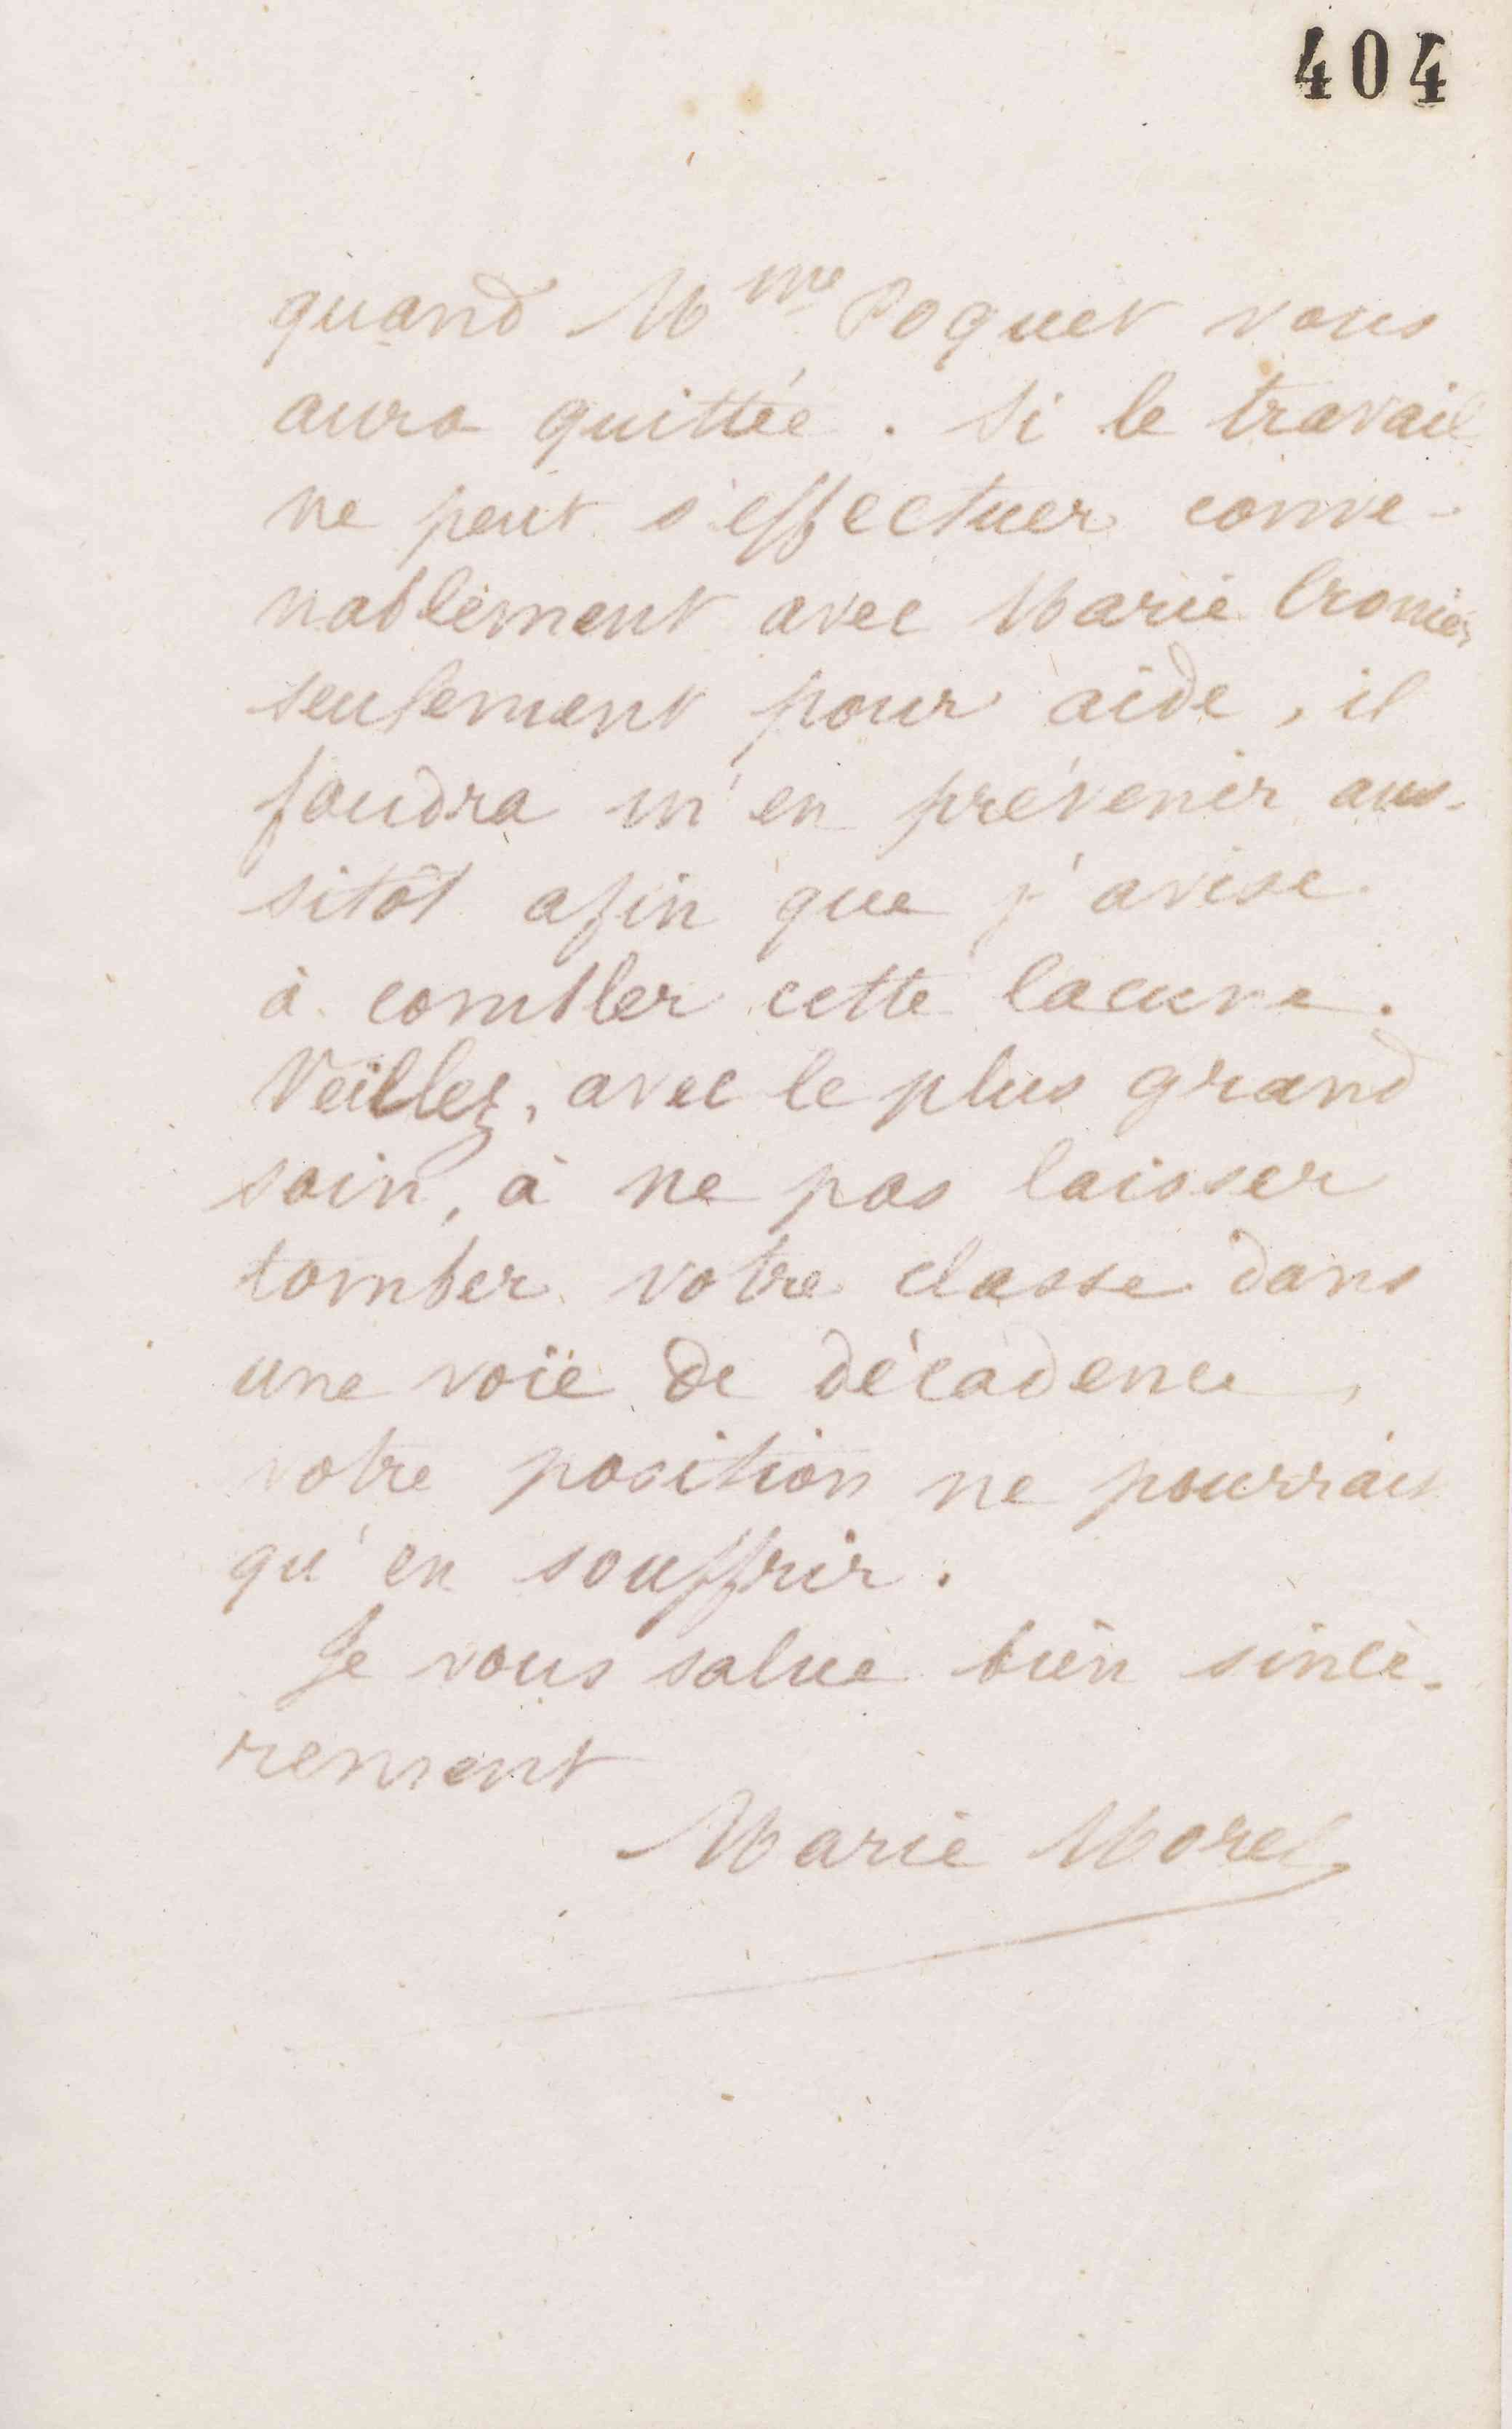 404
quand Mme Poquet vous
aura quittée. Si le travail
ne peut s'effectuer conve-
nablement avec Marie
seulement pour aide, il
faudra m'en prévenir aus-
sitôt afin que j'avise
à combler cette lacune.
Veillez, avec le plus grand
soin, à ne pas laisser
tomber votre classe dans
une voie de décadence,
votre position ne pourrait
qu'en souffrir.
Je vous salue bien sincè-
rement
Marie Moret